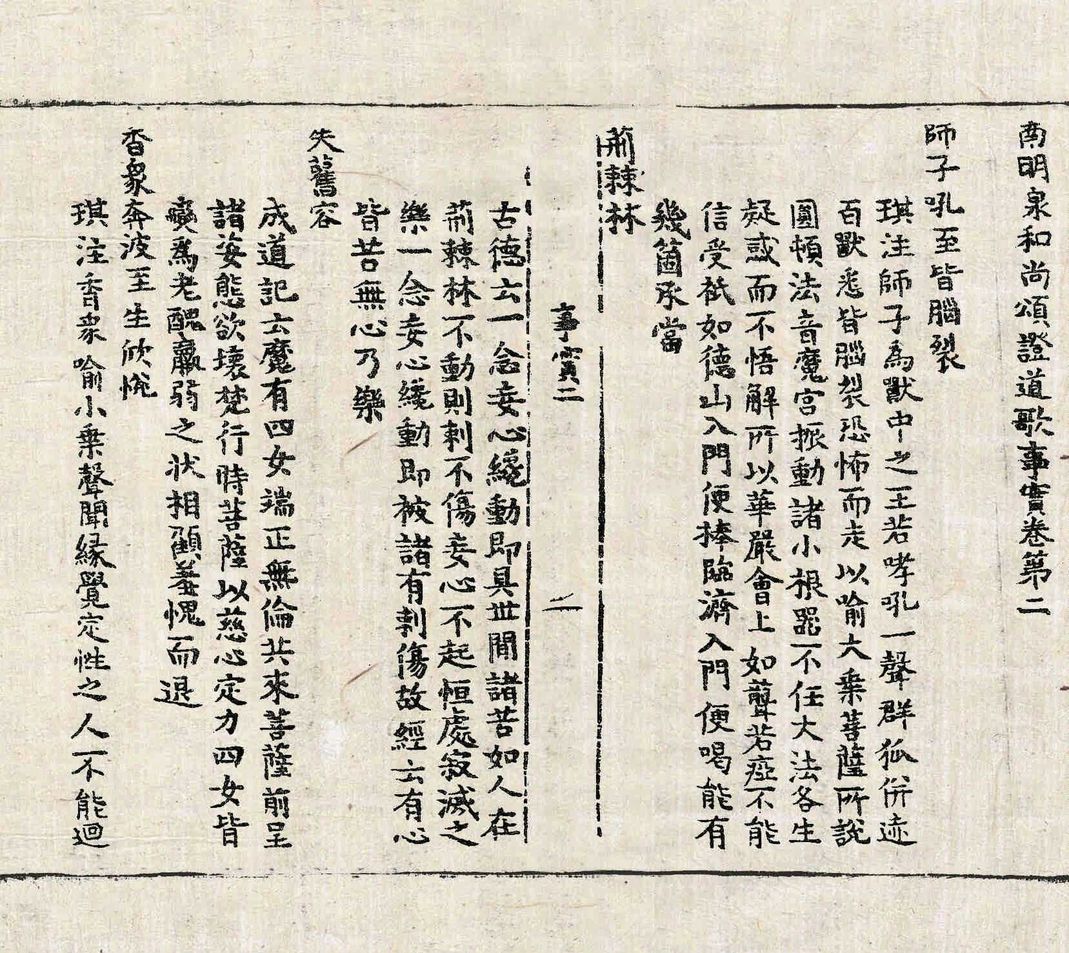 南明泉和尚頌證道歌事實卷第二
師子吼至皆腦裂
琪注師子為獸中之王若哮吼一聲群狐併迹
百獸悉皆腦裂恐怖而走以喻大乗菩薩所說
圓頓法音魔宫振動諸小根器不任大法各生
疑惑而不悟解所以華嚴會上如聾若瘂不能
信受秖如德山入門便棒臨濟入門便喝能有
幾箇承當
荊棘林
事實二
二
古德云一念妄心纔動即具世間諸苦如人在
荊棘林不動則刺不傷妄心不起恒處寂滅之
樂一念妄心纔動即被諸有刺傷故經云有心
皆苦無心乃樂
失舊容
成道記云魔有四女端正無倫共來菩薩前呈
諸姿態欲壞梵行時菩薩以慈心定力四女皆
變為老醜羸弱之状相顧羞愧而退
香象奔波至生欣悅
琪注香象喻小乗聲聞緣覺定性之人不能迴